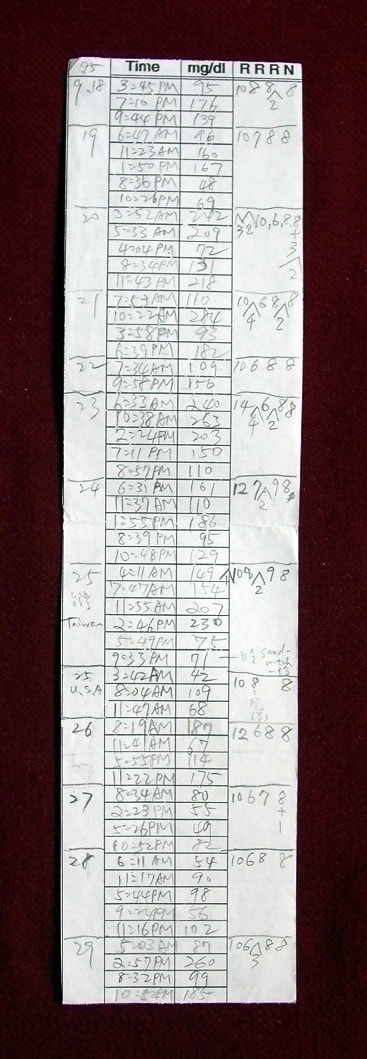 95 Time mg/dl R R R N
9.18 3:45 PM 95 10 8 8 8
7:10 PM 176 2
9:44 PM 139
19 6:47 AM 96 10 7 8 8
11:23 AM 160
1:50 PM 167
8:36 PM 48
10:26 PM 69
20 3:52 AM 242 10, 6, 8, 8
5:33 AM 209 32 +
4:04 PM 72 3
8:34 PM 131 2
11:43 PM 218
21 7:53 AM 110 10 6 8 8
10:22 AM 284 4 2
3:58 PM 93
6:39 PM 182
22 7:34 AM 109 10 6 8 8
9:58 PM 156
23 6:33 AM 240 14 6 8 8
10:38 AM 263 4 2
2:24 PM 203
7:11 PM 150
8:57 PM 110
24 6:31 PM 161 12 7 9 8
11:37 AM 110 2
1:55 PM 186
8:39 PM 95
10:48 PM 129
25 4:11 AM 149 10 8 9 8
7:47 AM 154 2
11:55 AM 207
Taiwan 2:46 PM 230
5:49 PM 75
9:33 PM 71
25 3:42 AM 42
U.S.A 8:04 AM 109 10 8 8
11:47 AM 68
26 8:19 AM 187 12 6 8 8
11:41 AM 67
5:55 PM 114
11:22 PM 175
27 8:34 AM 80 10 6 7 8
2:23 PM 55 +
5:26 PM 49 1
10:52 PM 82
28 6:11 AM 54 10 6 8 8
11:17 AM 90
5:44 PM 98
56
11:16 PM 102
29 5:03 AM 87 10 6 8 8
2:57 PM 260 3
8:32 PM 99
185